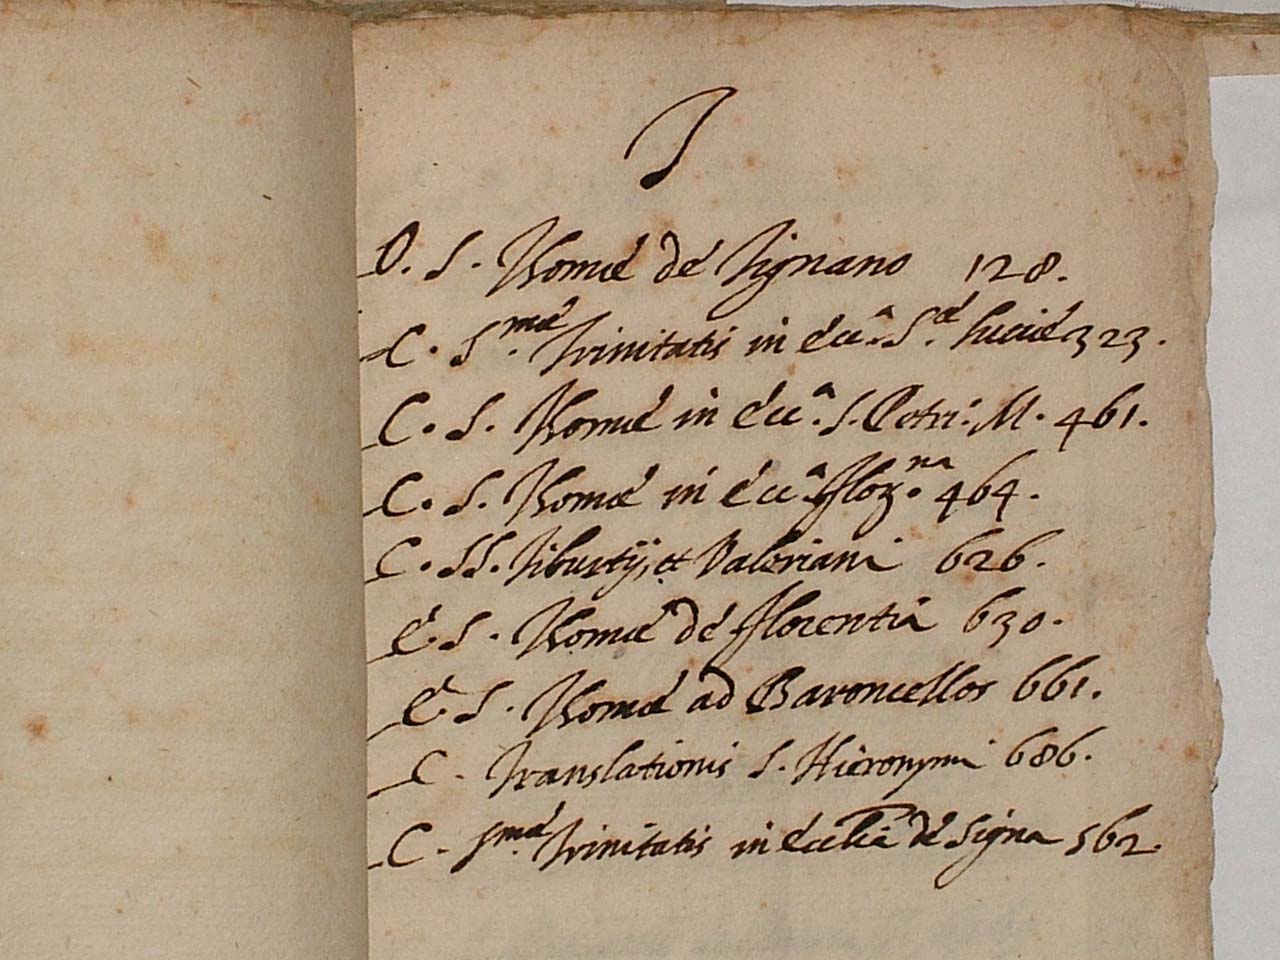 T
O. S. Thomæ de Signano 128.
C. S.mæ Trinitatis in ecc.a S.æ Luciæ 323.
C. S. Thomæ in ecc.a S. Petri. M. 461.
C. S. Thomæ in ecc.a flor.na 464.
C. SS. Tiburtij, et Valeriani 626.
E. S. Thomæ de fflorentia 630.
E. S. Thomæ ad Baroncellos 661.
C. Translationis S. Hieronymi 686.
C. S.mæ Trinitatis in ecclia de Signa 562.